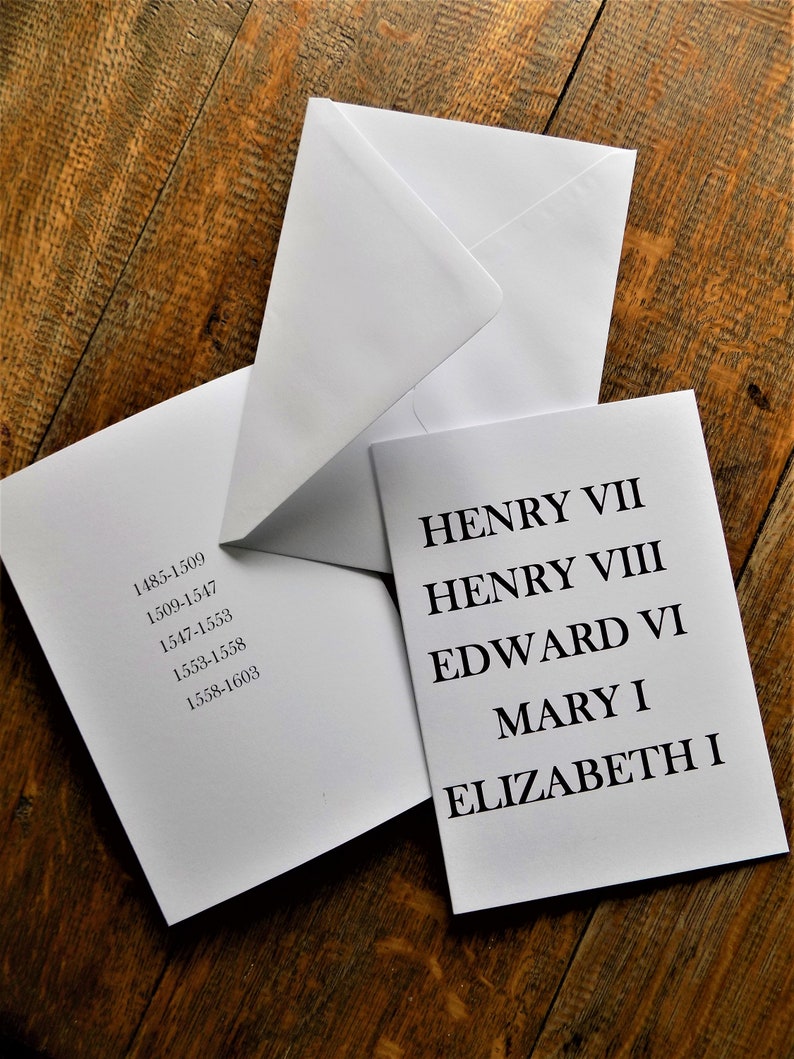 1485-1509
1509-1547
1547-1553
1553-1558
1558-1603
HENRY VII
HENRY VIII
EDWARD VI
MARY I
ELIZABETH I